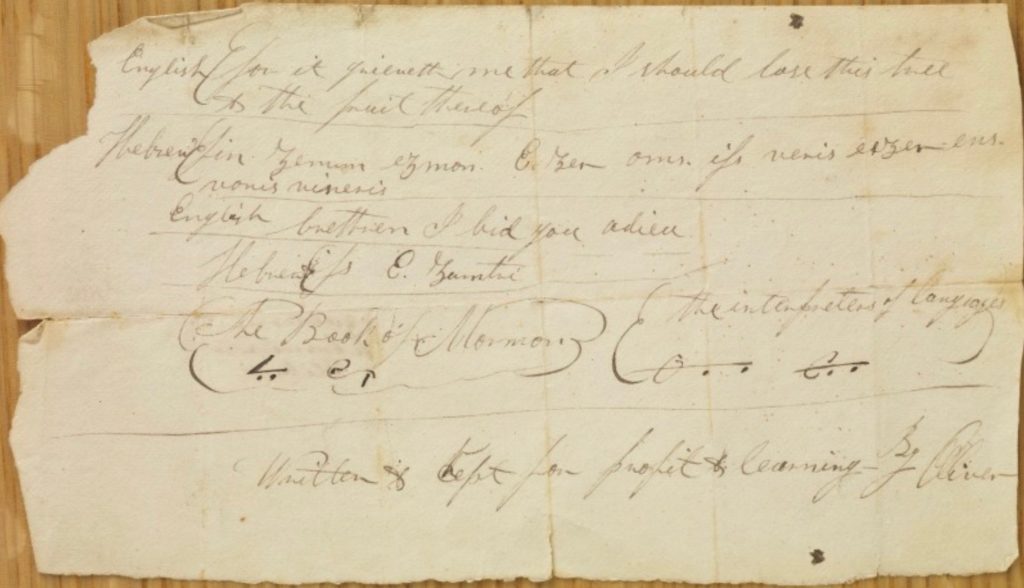 English for it grieveth me that I should lose this tree
& the fruit thereof
Hebrew ifin Zemim ezmon E. Zer oms. ifs veris ezer ens.
vonis vineris
English brethren I bid you adieu
Hebrew ifs E. Zamtri
The Book of Mormon
the interpreters of languages
Written & Kept for profit & learning - By Oliver